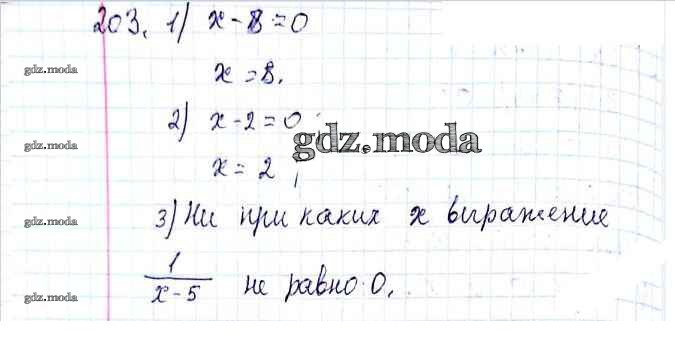 203. 1) x - 8 = 0
x = 8.
gdz.moda
2) x - 2 = 0;
gdz.moda
gdz.moda
x = 2;
3) Ни при каких x выражение
gdz.moda
1/(x - 5) не равно 0.
gdz.moda